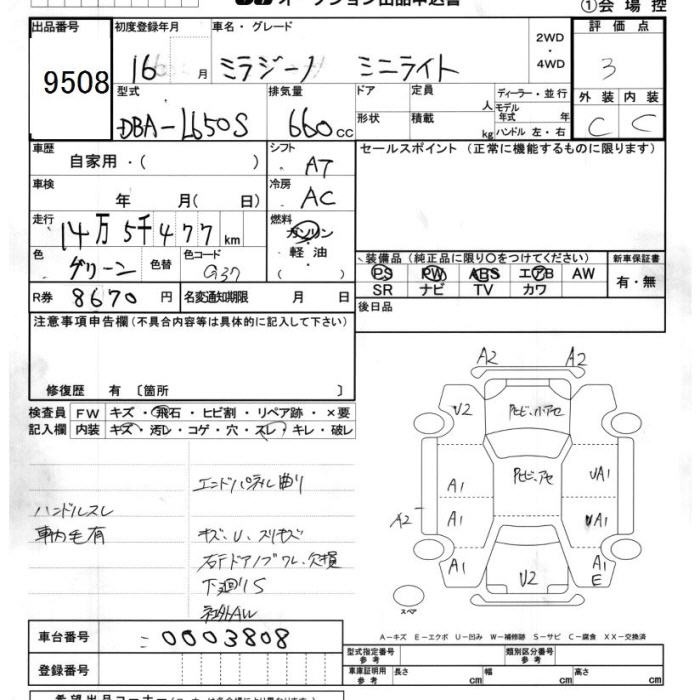 ①会場控
出品番号
9508
初度登録年月
16 月
車名・グレード
ミラジーノ ミニライト
2WD
・
4WD
評価点
3
外装 内装
C C
型式
DBA-L650S
排気量
660cc
ドア
形状
定員
人
積載
kg
ディーラー・並行
モデル
年式 年
ハンドル 左・右
車歴
自家用・( )
シフト
AT
セールスポイント (正常に機能するものに限ります)
車検
年 月( 日)
冷房
AC
走行
14万5千477km
燃料
ガソリン
・
軽油
( )
色
グリーン
色替
色コード
G37
装備品 (純正品に限り○をつけてください)
PS PW ABS エアB AW
SR ナビ TV カワ
新車保証書
有・無
R券 8670円
名変通知期限 月 日
後日品
注意事項申告欄 (不具合内容等は具体的に記入して下さい)
修復歴 有 〔箇所 〕
検査員
記入欄
FW キズ・飛石・ヒビ割・リペア跡・×要
内装 キズ・汚レ・コゲ・穴・スレ・キレ・破レ
エンドパネル曲り
ハンドルスレ
車内毛有
キズ、U、スリキズ
右FドアノブワレZ欠損
下廻りS
社外AW
A2 A2
U2
A1 UA1
A2 A1 UA1
A1 U2 A1
E
スペア
A-キズ E-エクボ U-凹み W-補修跡 S-サビ C-腐食 XX-交換済
車台番号 0003808
登録番号
型式指定番号
参考
類別区分番号
参考
車庫証明用
参考
長さ cm
幅 cm
高さ cm